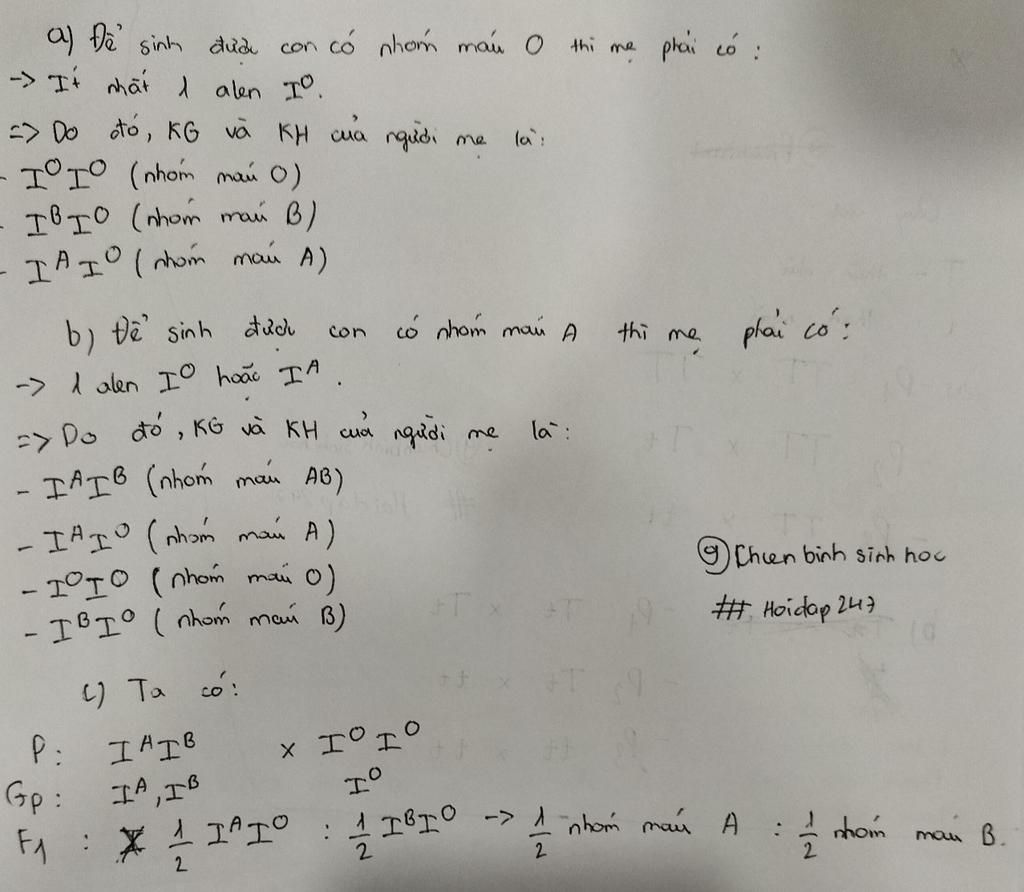 a) Để sinh được con có nhóm máu O thì mẹ phải có :
-> Ít nhất 1 alen I^O.
=> Do đó, KG và KH của người mẹ là:
- I^O I^O (nhóm máu O)
- I^B I^O (nhóm máu B)
- I^A I^O (nhóm máu A)
b) Để sinh được con có nhóm máu A thì mẹ phải có:
-> 1 alen I^O hoặc I^A.
=> Do đó, KG và KH của người mẹ là:
- I^A I^B (nhóm máu AB)
- I^A I^O (nhóm máu A)
- I^O I^O (nhóm máu O)
- I^B I^O (nhóm máu B)
g Chien binh sinh hoc
# Hoidap247
c) Ta có:
P: I^A I^B x I^O I^O
Gp: I^A, I^B I^O
F1 : 1/2 I^A I^O : 1/2 I^B I^O -> 1/2 nhóm máu A : 1/2 nhóm máu B.